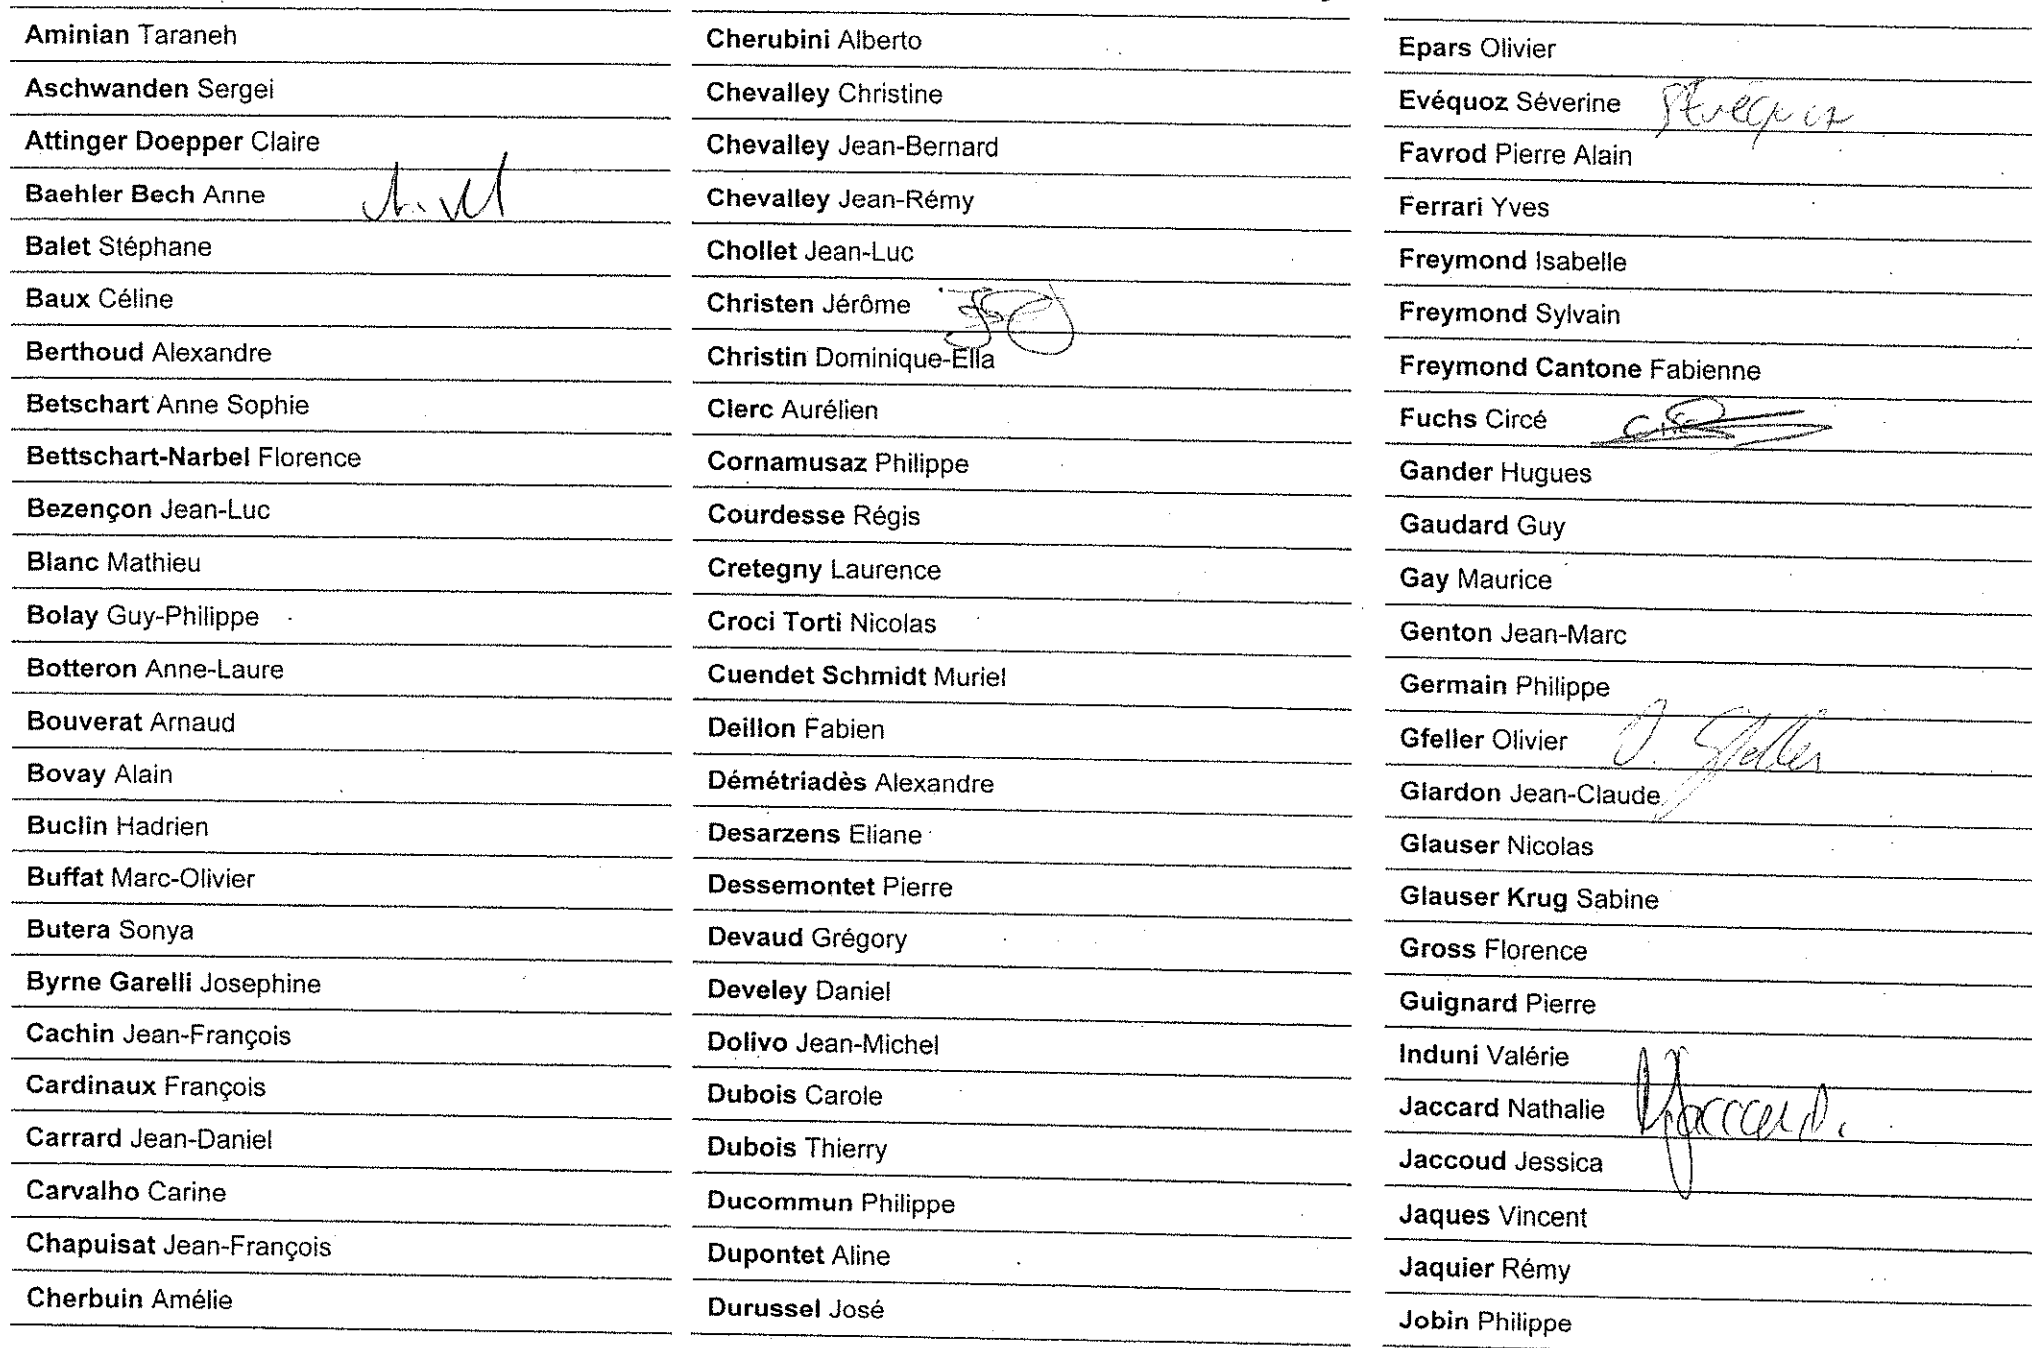 Aminian Taraneh
Aschwanden Sergei
Attinger Doepper Claire
Baehler Bech Anne
Balet Stéphane
Baux Céline
Berthoud Alexandre
Betschart Anne Sophie
Bettschart-Narbel Florence
Bezençon Jean-Luc
Blanc Mathieu
Bolay Guy-Philippe
Botteron Anne-Laure
Bouverat Arnaud
Bovay Alain
Buclin Hadrien
Buffat Marc-Olivier
Butera Sonya
Byrne Garelli Josephine
Cachin Jean-François
Cardinaux François
Carrard Jean-Daniel
Carvalho Carine
Chapuisat Jean-François
Cherbuin Amélie
Cherubini Alberto
Chevalley Christine
Chevalley Jean-Bernard
Chevalley Jean-Rémy
Chollet Jean-Luc
Christen Jérôme
Christin Dominique-Ella
Clerc Aurélien
Cornamusaz Philippe
Courdesse Régis
Cretegny Laurence
Croci Torti Nicolas
Cuendet Schmidt Muriel
Deillon Fabien
Démétriadès Alexandre
Desarzens Eliane
Dessemontet Pierre
Devaud Grégory
Develey Daniel
Dolivo Jean-Michel
Dubois Carole
Dubois Thierry
Ducommun Philippe
Dupontet Aline
Durussel José
Epars Olivier
Evéquoz Séverine
Favrod Pierre Alain
Ferrari Yves
Freymond Isabelle
Freymond Sylvain
Freymond Cantone Fabienne
Fuchs Circé
Gander Hugues
Gaudard Guy
Gay Maurice
Genton Jean-Marc
Germain Philippe
Gfeller Olivier O. Gfeller
Glardon Jean-Claude
Glauser Nicolas
Glauser Krug Sabine
Gross Florence
Guignard Pierre
Induni Valérie
Jaccard Nathalie
Jaccoud Jessica
Jaques Vincent
Jaquier Rémy
Jobin Philippe